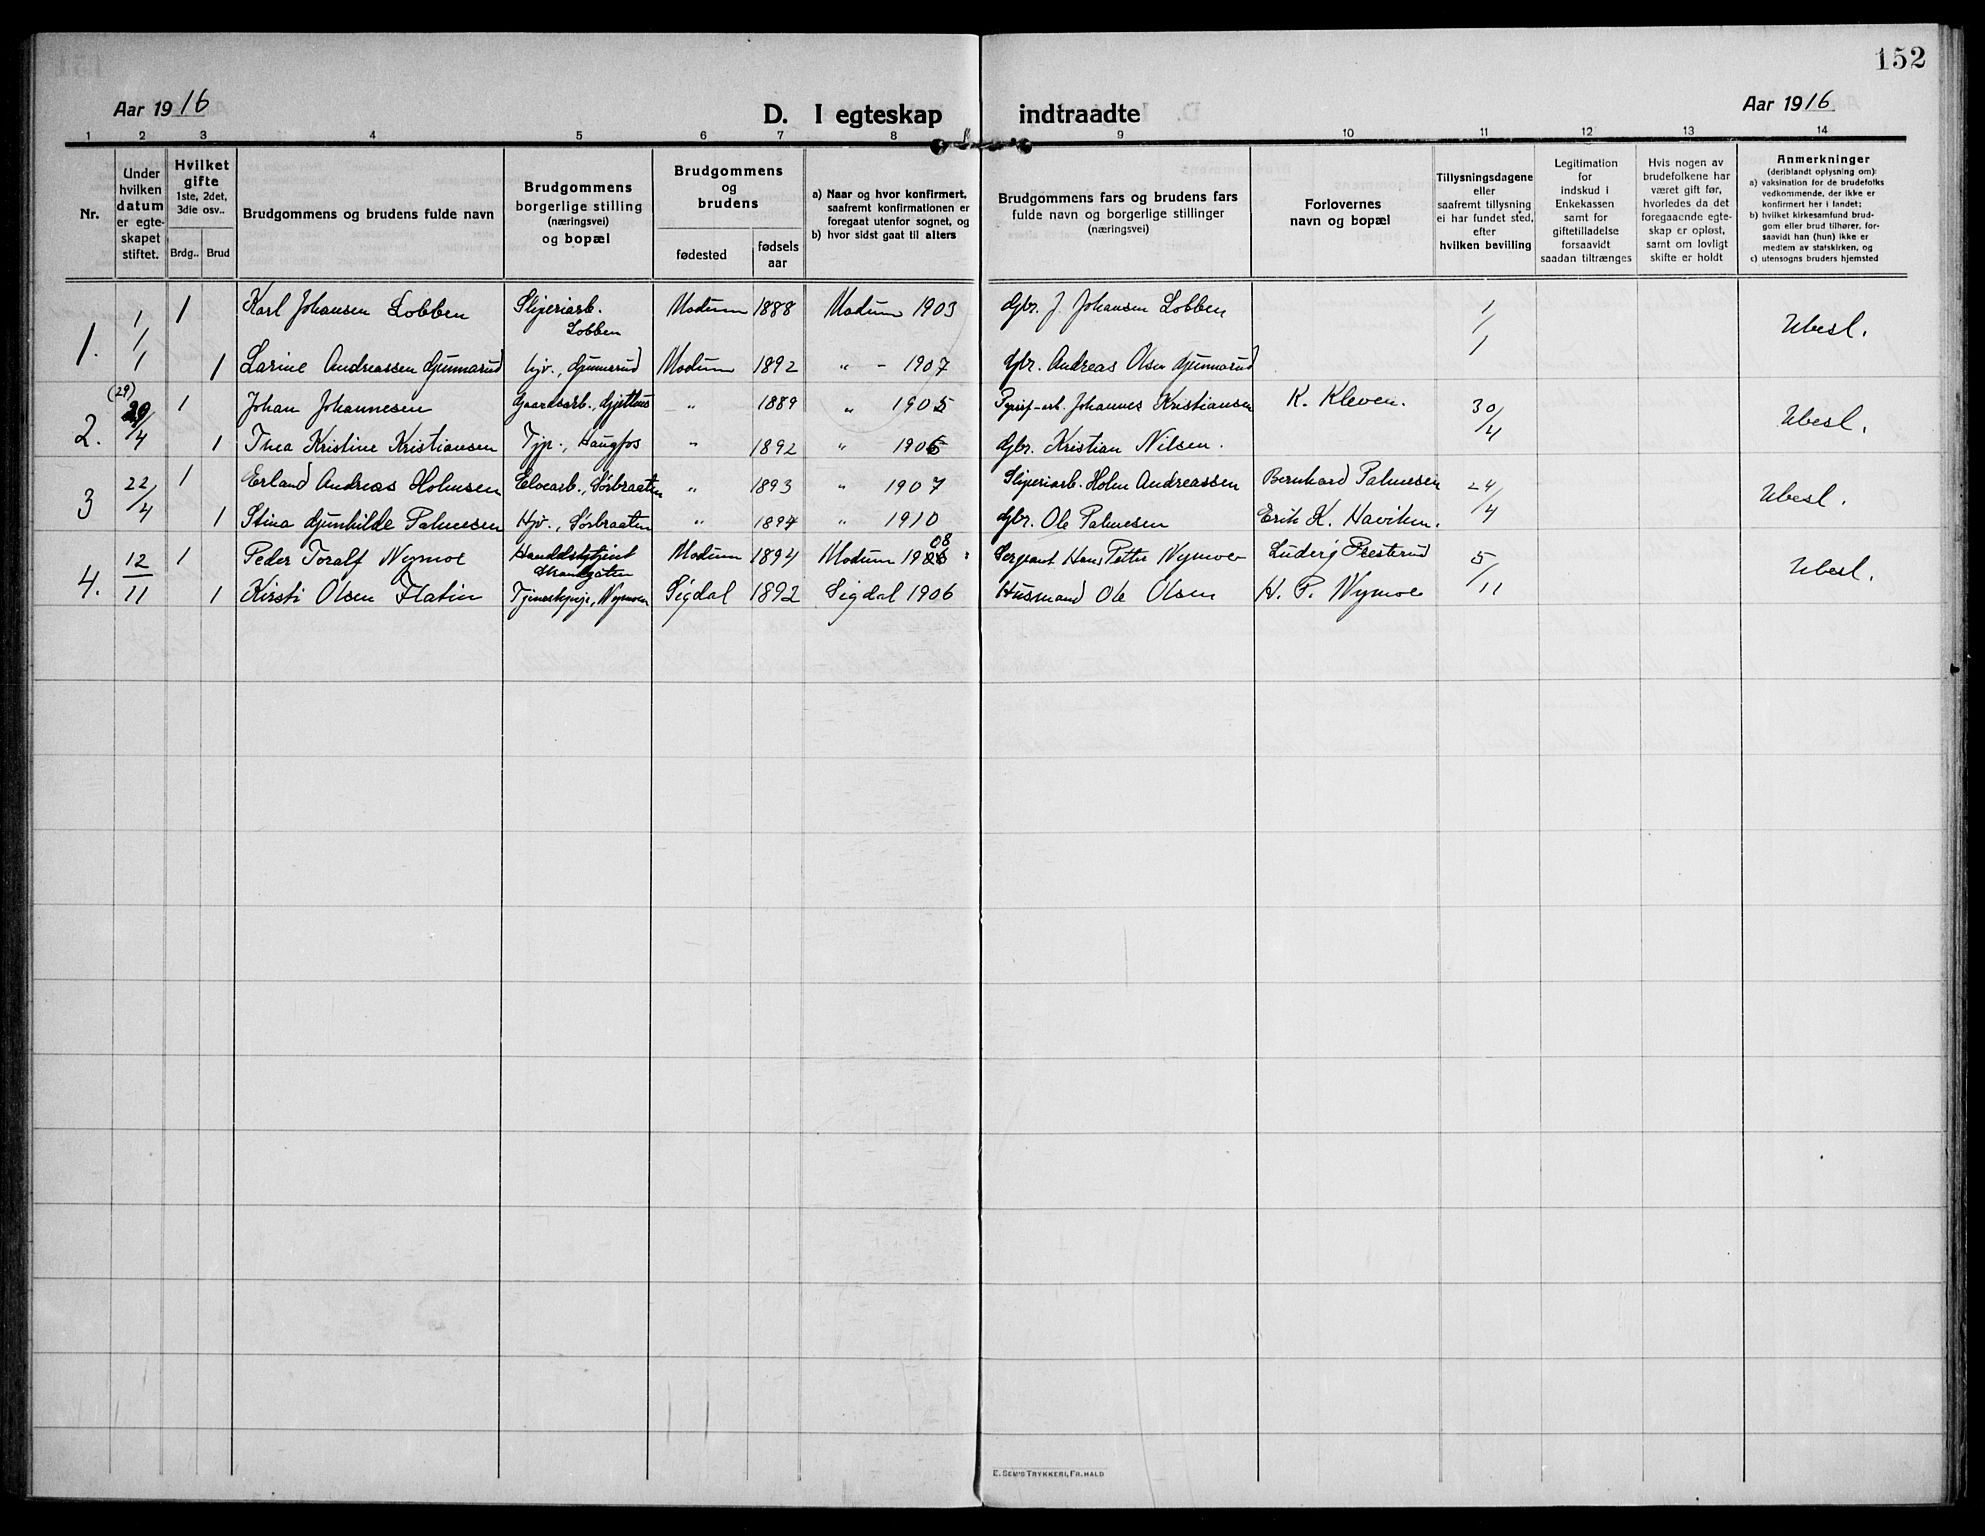 152
Aar 1916
D. I egteskap indtraadte
Aar 1916
1 2 3 4 5 6 7 8 9 10 11 12 13 14
Nr.
Under hvilken datum er egte-skapet stiftet.
Hvilket gifte
1ste, 2det, 3die osv..
Brdg.. Brud
Brudgommens og brudens fulde navn
Brudgommens borgerlige stilling (næringsvei) og bopæl
Brudgommens og brudens
fødested
fødsels aar
a) Naar og hvor konfirmert, saafremt konfirmationen er foregaat utenfor sognet, og
b) hvor sidst gaat til alters
Brudgommens fars og brudens fars fulde navn og borgerlige stillinger (næringsvei)
Forlovernes navn og bopæl
Tillysningsdagene eller saafremt tillysning ei har fundet sted, efter hvilken bevilling
Legitimation for indskud i Enkekassen samt for giftetilladelse forsaavidt saadan tiltrænges
Hvis nogen av brudefolkene har været gift før, hvorledes da det foregaaende egte-skap er opløst, samt om lovligt skifte er holdt
Anmerkninger
(deriblandt oplysning om):
a) vaksination for de brudefolks vedkommende, der ikke er konfirmert her i landet;
b) hvilket kirkesamfund brud-gom eller brud tilhører, for-saavidt han (hun) ikke er medlem av statskirken, og
c) utensogns bruders hjemsted
1. 1/1 1 Karl Johansen Lobben Sliperiarb. Lobben Modum 1888 Modum 1903 Gbr. J. Johansen Lobben 1/1 Ubesl.
1 Larine Andreassen Gunnarud Hjv., Gunnerud Modum 1892 " - 1907 Gbr. Andreas Olsen Gunnarud
2. (29) 29/4 1 Johan Johannesen Gaardsarb., Gjethus " 1889 " 1905 Johannes Kristiansen K. Kleven. 30/4 Ubesl.
1 Thea Kristine Kristiansen Tjp., Haugfos " 1892 " 1906 Gbr. Kristian Nilsen.
3 22/4 1 Erland Andreas Holmsen Elvearb., Sørbraaten " 1893 " 1907 Sliperiarb. Holm Andreassen Bernhard Palmesen 24/4 Ubesl.
1 Stina Gunhilde Palmesen Hjv., Sørbraaten " 1894 " 1910 Gbr. Ole Palmesen Erik K. Haviken.
4. 12/11 1 Peder Toralf Nymoe Strandgaten Modum 1894 Modum 1908 Sergeant Hans Petter Nymoe Ludvig Presterud 5/11 Ubesl.
1 Kirsti Olsen Flatin Tjenestepige, Nymoen Sigdal 1892 Sigdal 1906 Husmand Ole Olsen H. P. Nymoe
E. SEM'S TRYKKERI, FR. HALD